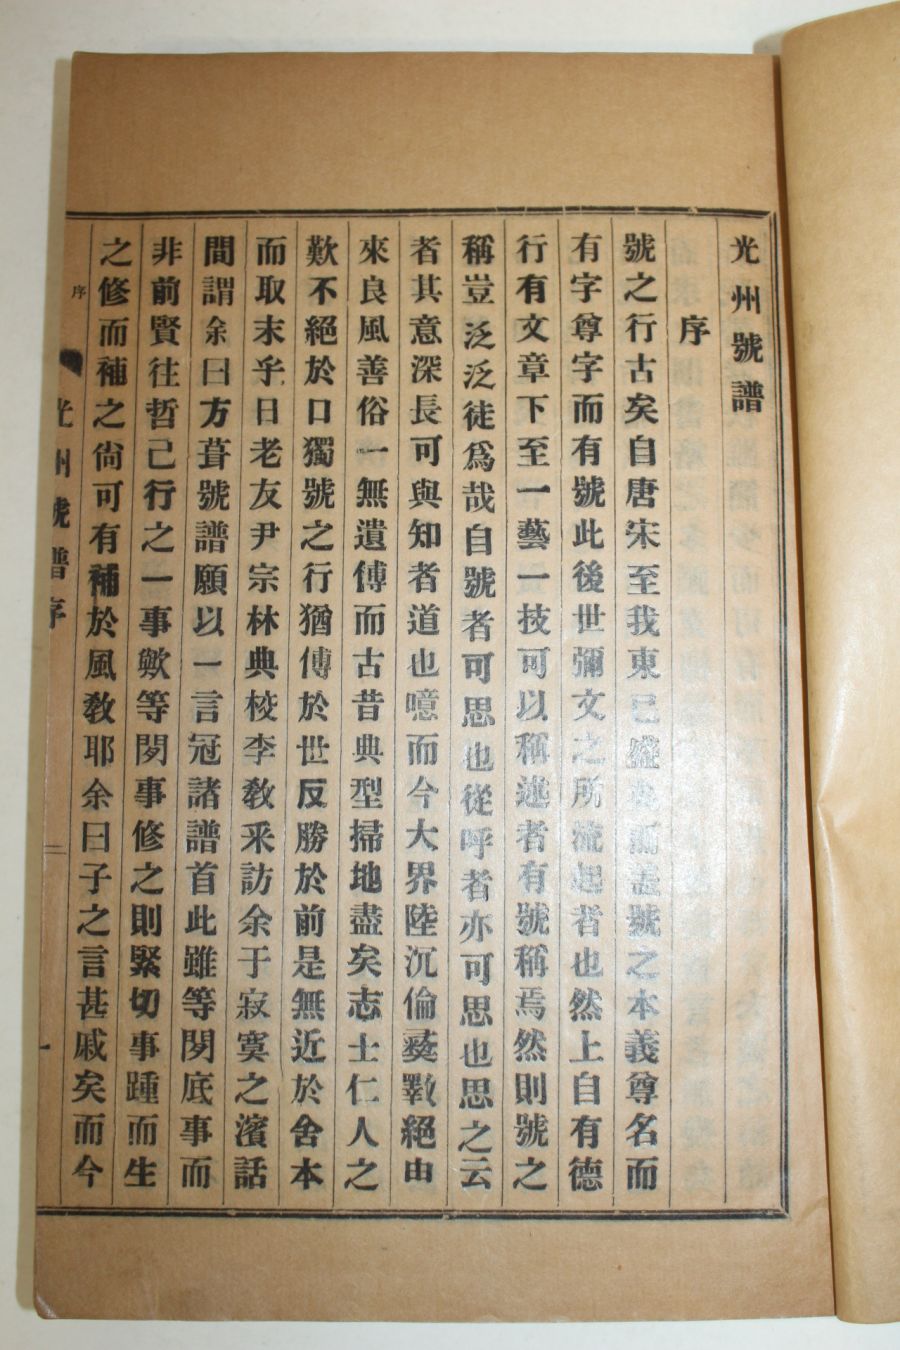 光州號譜
序
號之行古矣自唐宋至我東已盛也而盖號之本義尊名而
有字尊字而有號此後世彌文之所流起者也然上自有德
行有文章下至一藝一技可以稱述者有號稱焉然則號之
稱豈泛泛徒爲哉自號者可思也從呼者亦可思也思之云
者其意深長可與知者道也噫而今大界陸沉倫彛斁絕由
來良風善俗一無遺傳而古昔典型掃地盡矣志士仁人之
歎不絕於口獨號之行猶傳於世反勝於前是無近於舍本
而取末乎日老友尹宗林典校李教釆訪余于寂寞之濱話
間謂余曰方葺號譜願以一言冠諸譜首此雖等閔底事而
非前賢往哲己行之一事歟等閔事修之則緊切事踵而生
之修而補之尙可有補於風教耶余曰子之言甚戚矣而今
序
光州號譜序
一